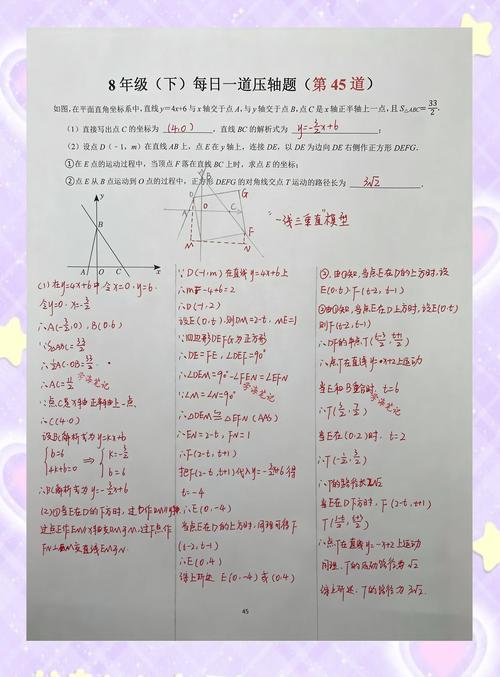 8年级（下）每日一道压轴题（第 45 道）
如图,在平面直角坐标系中,直线 y=4x+6 与 x 轴交于点 A,与 y 轴交于点 B,点 C 是 x 轴正半轴上一点,且 S△ABC=33/2.
（1）直接写出点 C 的坐标为 (4,0) ,直线 BC 的解析式为 y=-3/2x+6 ;
（2）设点 D（-1，m）在直线 AB 上，点 E 在 y 轴上，连接 DE，以 DE 为边向 DE 右侧作正方形 DEFG.
①在 E 点的运动过程中，当顶点 F 落在直线 BC 上时，求点 E 的坐标;
②点 E 从 B 点运动到 O 点的过程中，正方形 DEFG 的对角线交点 T 运动的路径长为 3√2 .
y
B
A
O
C
x
D
G
A
O
C
F
E
M
N
"一线三垂直"模型
(1)在y=4x+6中,令x=0,y=6.
令y=0,x=-3/2
∴A(-3/2,0),B(0,6)
∵S△ABC=33/2
∴1/2AC·OB=33/2
∴AC=11/2
学浪笔记
∵点C是x轴正半轴上一点.
∴C(4,0)
设BC解析式为y=kx+b
{b=6
4k+b=0 ⇒ {k=-3/2
b=6
∴BC解析式为y=-3/2x+6
(2)①当E在D的下方时,过
∵D(-1,m)在直线y=4x+6上
∴m=-4+6=2
∴D(-1,2)
设E(0,t),则DM=2-t, ME=1
∵四边形DEFG为正方形
∴DE=FE,∠DEF=90°
∴∠DEM=90°-∠FEN=∠EFN
学浪笔记
∵∠M=∠N=90°
∴△DEM≌△EFN (AAS)
∴EN=2-t, FN=1
∴F(2-t,t+1)
把F(2-t,t+1)代入y=-3/2x+6得
t=-4
∴E(0,-4)
当点E在D的上方时,同理可得F
(t-2,t-1)
∴E(0,4)
综上所述 E(0,-4)或(0,4)
②由①知,当点E在D的上方时,设
E(0,t) F(t-2,t-1)
∴点T在直线y=x+2上运动
当E和B重合时,t=6
学浪笔记
∴T(3/2,7/2)
当E在(0,2)时, t=2
∴T(-1/2,3/2)
∴T的路径长2√2
当E在D下方时, F(2-t,t+1)
∴点T在直线y=-x+2上运动
综上所述: T的路径为3√2.
45